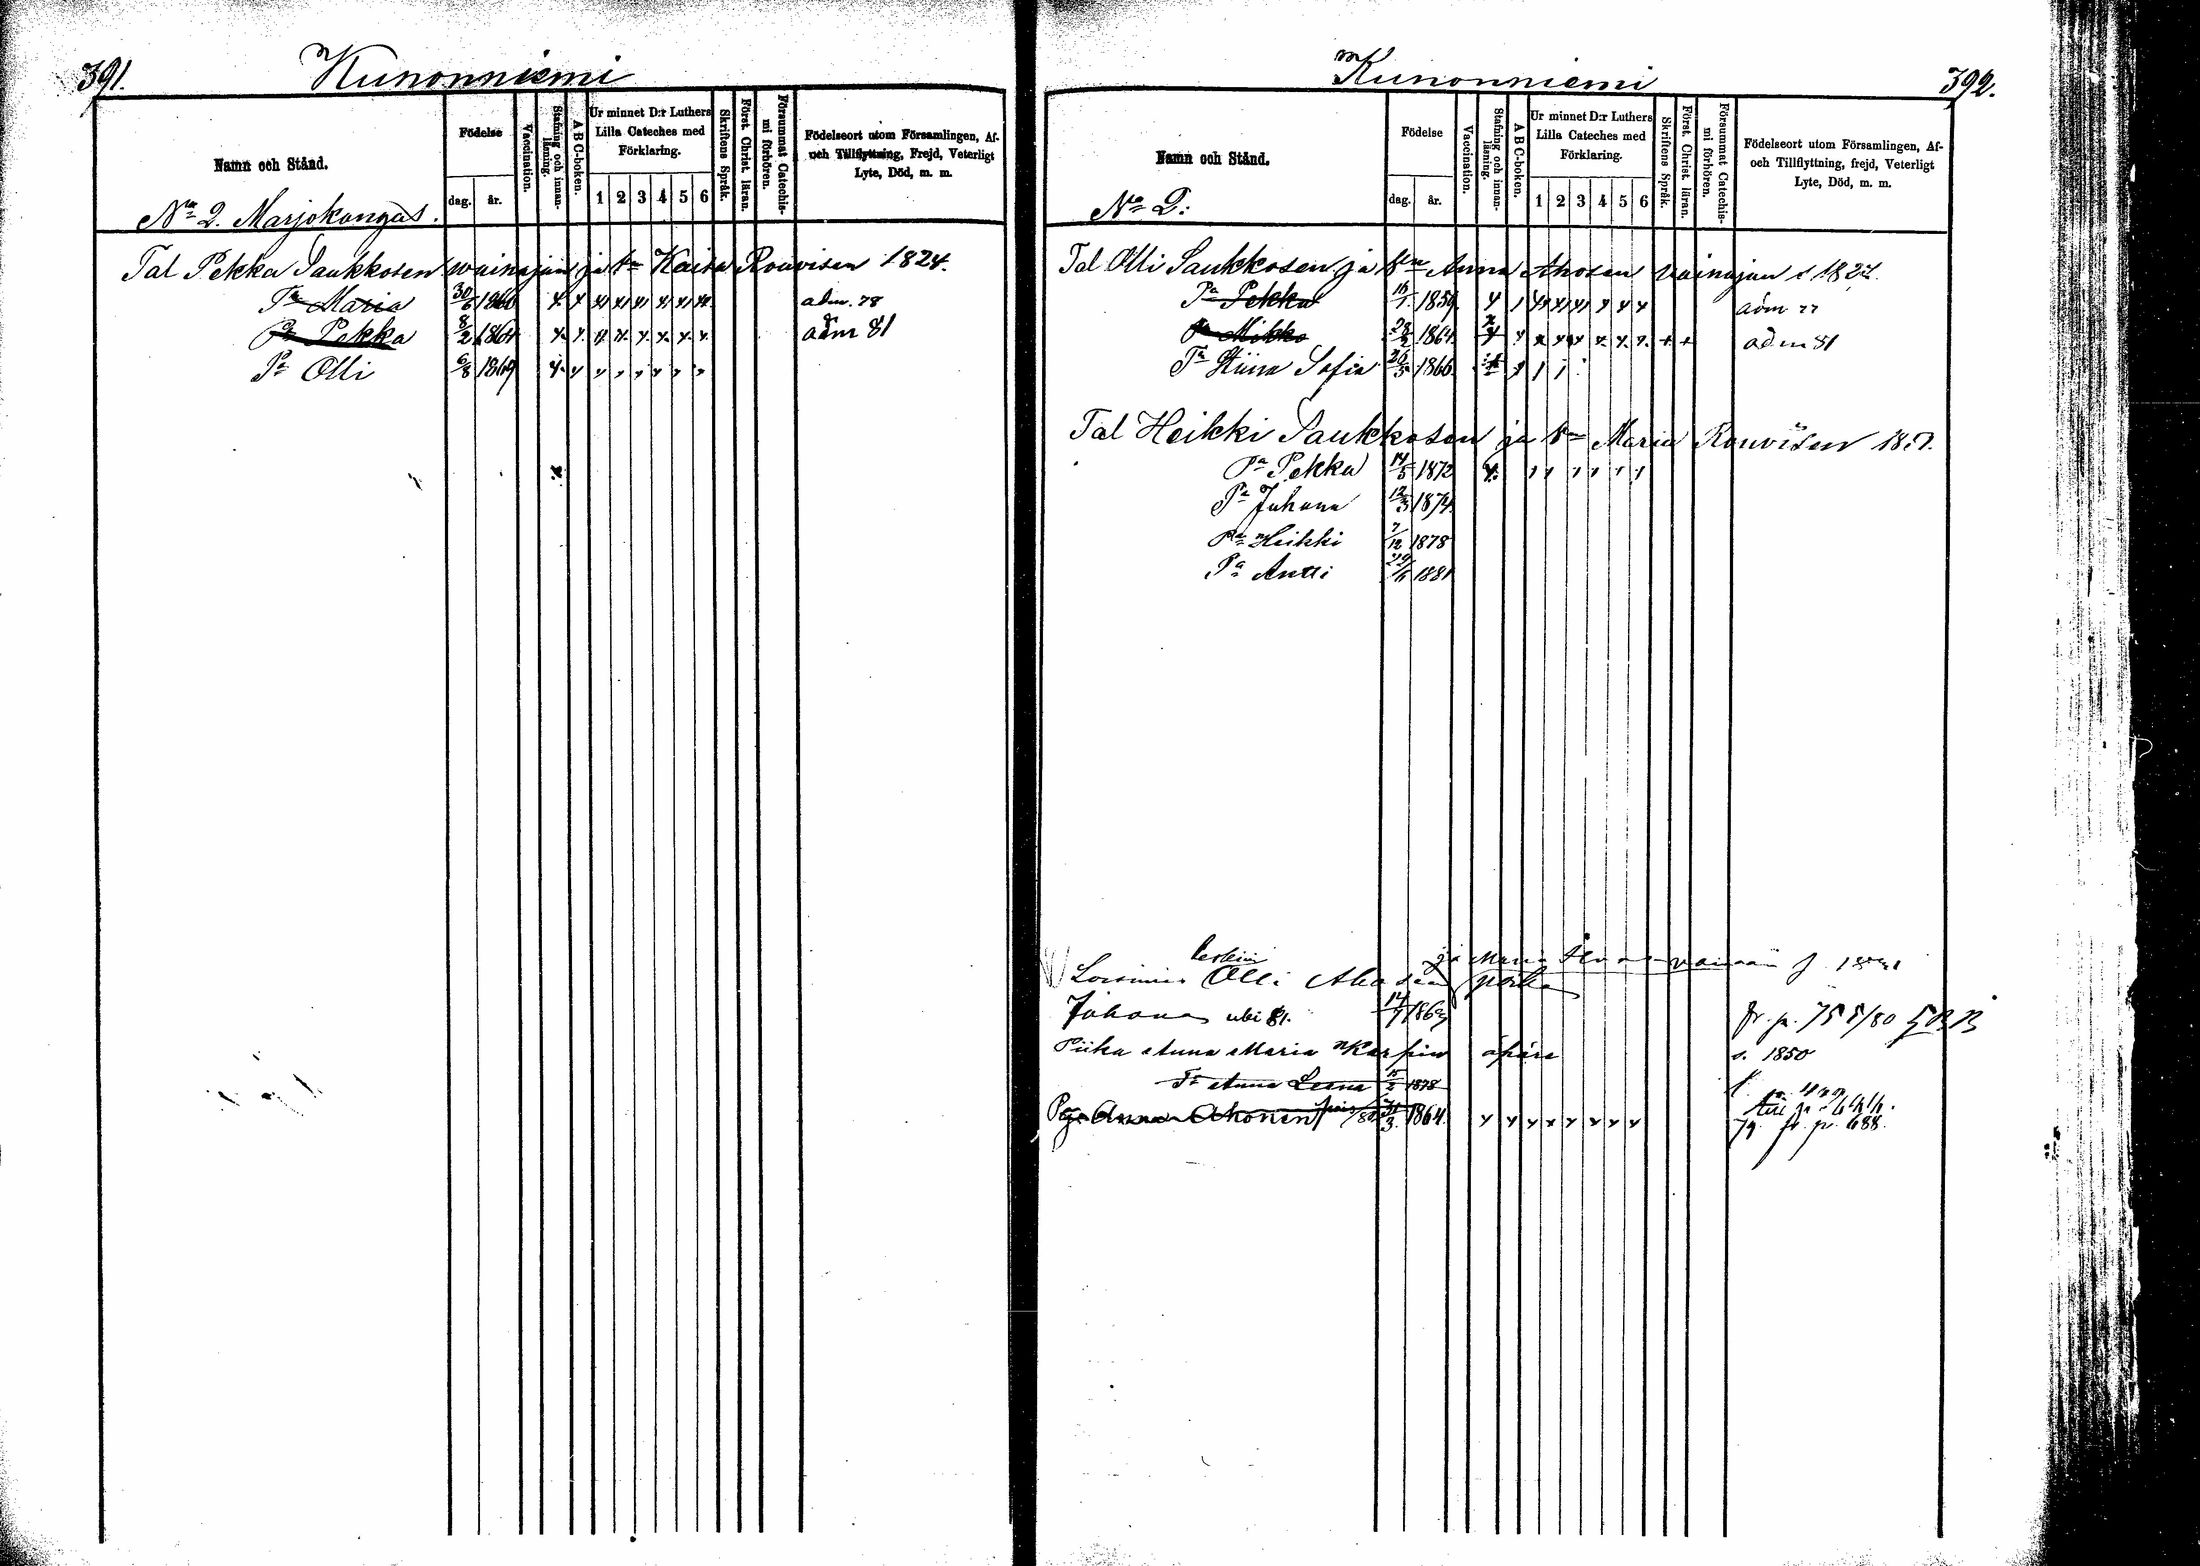 391.
Kunonniemi
Namn och Stånd.
Födelse
dag.
år.
Vaccination.
Stafning och innan-läsning.
A B C-boken.
Ur minnet D:r Luthers
Lilla Cateches med
Förklaring.
1 2 3 4 5 6
Skriftens Språk.
Först. Christ. läran.
Försummat Catechis-
mi förhören.
Födelseort utom Församlingen, Af-
och Tillflyttning, Frejd, Veterligt
Lyte, Död, m. m.
No 2. Marjokangas.
Tal Pekka Saukkosen wainajan ja vn Kaisa Rouvisen 1824.
Tr Maria 30/6 1860 adm. 78
Pa Pekka 8/2 1864 adm 81
Pa Olli 6/8 1869
Kunonniemi
392.
Namn och Stånd.
Födelse
dag.
år.
Vaccination.
Stafning och innan-läsning.
A B C-boken.
Ur minnet D:r Luthers
Lilla Cateches med
Förklaring.
1 2 3 4 5 6
Skriftens Språk.
Först. Christ. läran.
Försummat Catechis-
mi förhören.
Födelseort utom Församlingen, Af-
och Tillflyttning, frejd, Veterligt
Lyte, Död, m. m.
No 2:
Tal Olli Saukkosen ja vn Anna Ahosen vainajan
Pa Pekka 1859 adm 77
Pa Mikko 1864 adm 81
Tr Stiina Sofia 1866
Tal Heikki Saukkosen ja vn Maria Rouvisen
Pa Pekka 14/5 1872
Pa Juhana 12/3 1874
Pa Heikki 7/12 1878
Pa Antti 1881
leskein
Loisimies Olli Ahosen poika
Juhana ubi 81. 1863
Piika Anna Maria Karpin äpärä s. 1850
Tr Anna Leena 15/2 1878
Pg. Anna Ahonen 31/3 1864 79 fr. p. 688.